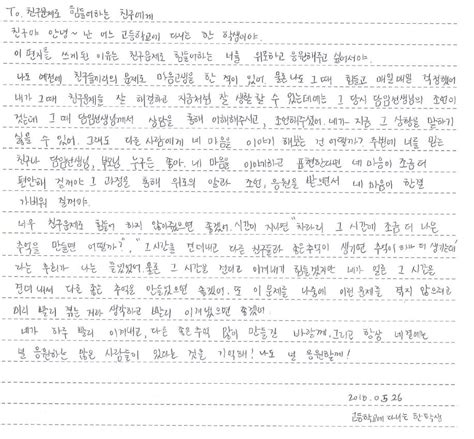 To. 친구문제로 힘들어하는 친구에게
친구야 안녕~ 난 어느 고등학교에 다니는 한 학생이야.
이 편지를 쓰게된 이유는 친구문제로 힘들어하는 너를 위로하고 응원해주고 싶어서야.
나도 예전에 친구들끼리의 문제로 마음고생을 한 적이 있어. 물론 나도 그때 힘들고 매일매일 걱정했어
내가 그때 친구문제를 잘 해결하고 지금처럼 잘 생활할 수 있는데에는 그 당시 담임선생님의 조언이
컸는데 그 때 담임선생님께서 상담을 통해 이해해주시고, 조언해주셨어. 네가 지금 그 상황을 말하기
싫을 수 있어. 그래도 다른 사람에게 네 마음을 이야기 해보는 건 어떨까? 주변에 너를 믿는
친구나 담임선생님, 부모님 누구든 좋아. 네 마음을 이야기하고 표현한다면 네 마음이 조금 더
편안해 질꺼야. 그 과정을 통해 위로의 말과 조언, 응원을 받으면서 네 마음이 한결
가벼워 질꺼야.
너무 친구문제로 힘들어 하지 않아줬으면 좋겠어. 시간이 지나면 "차라리 그 시간에 조금 더 나은
추억을 만들면 어떨까?", "그 시간을 견뎌내고 다른 친구들과 좋은추억이 생기면 추억이 하나 더 생길텐데"
라는 후회가 나는 들었었어. 물론 그 시간을 견디고 이겨내기 힘들겠지만 네가 잃은 그 시간을
견뎌 내서 다른 좋은 추억을 만들었으면 좋겠어. 또 이 문제를 나중에 이런 문제를 겪지 않으려고
미리 빨리 겪는 거라 생각하고 빨리 이겨냈으면 좋겠어.
네가 하루 빨리 이겨내고, 다른 좋은 추억 많이 만들길 바랄께. 그리고 항상 네 곁에는
널 응원하는 많은 사람들이 있다는 것을 기억해! 나도 널 응원할께!
2010.05.26
고등학교에 다니는 한 학생